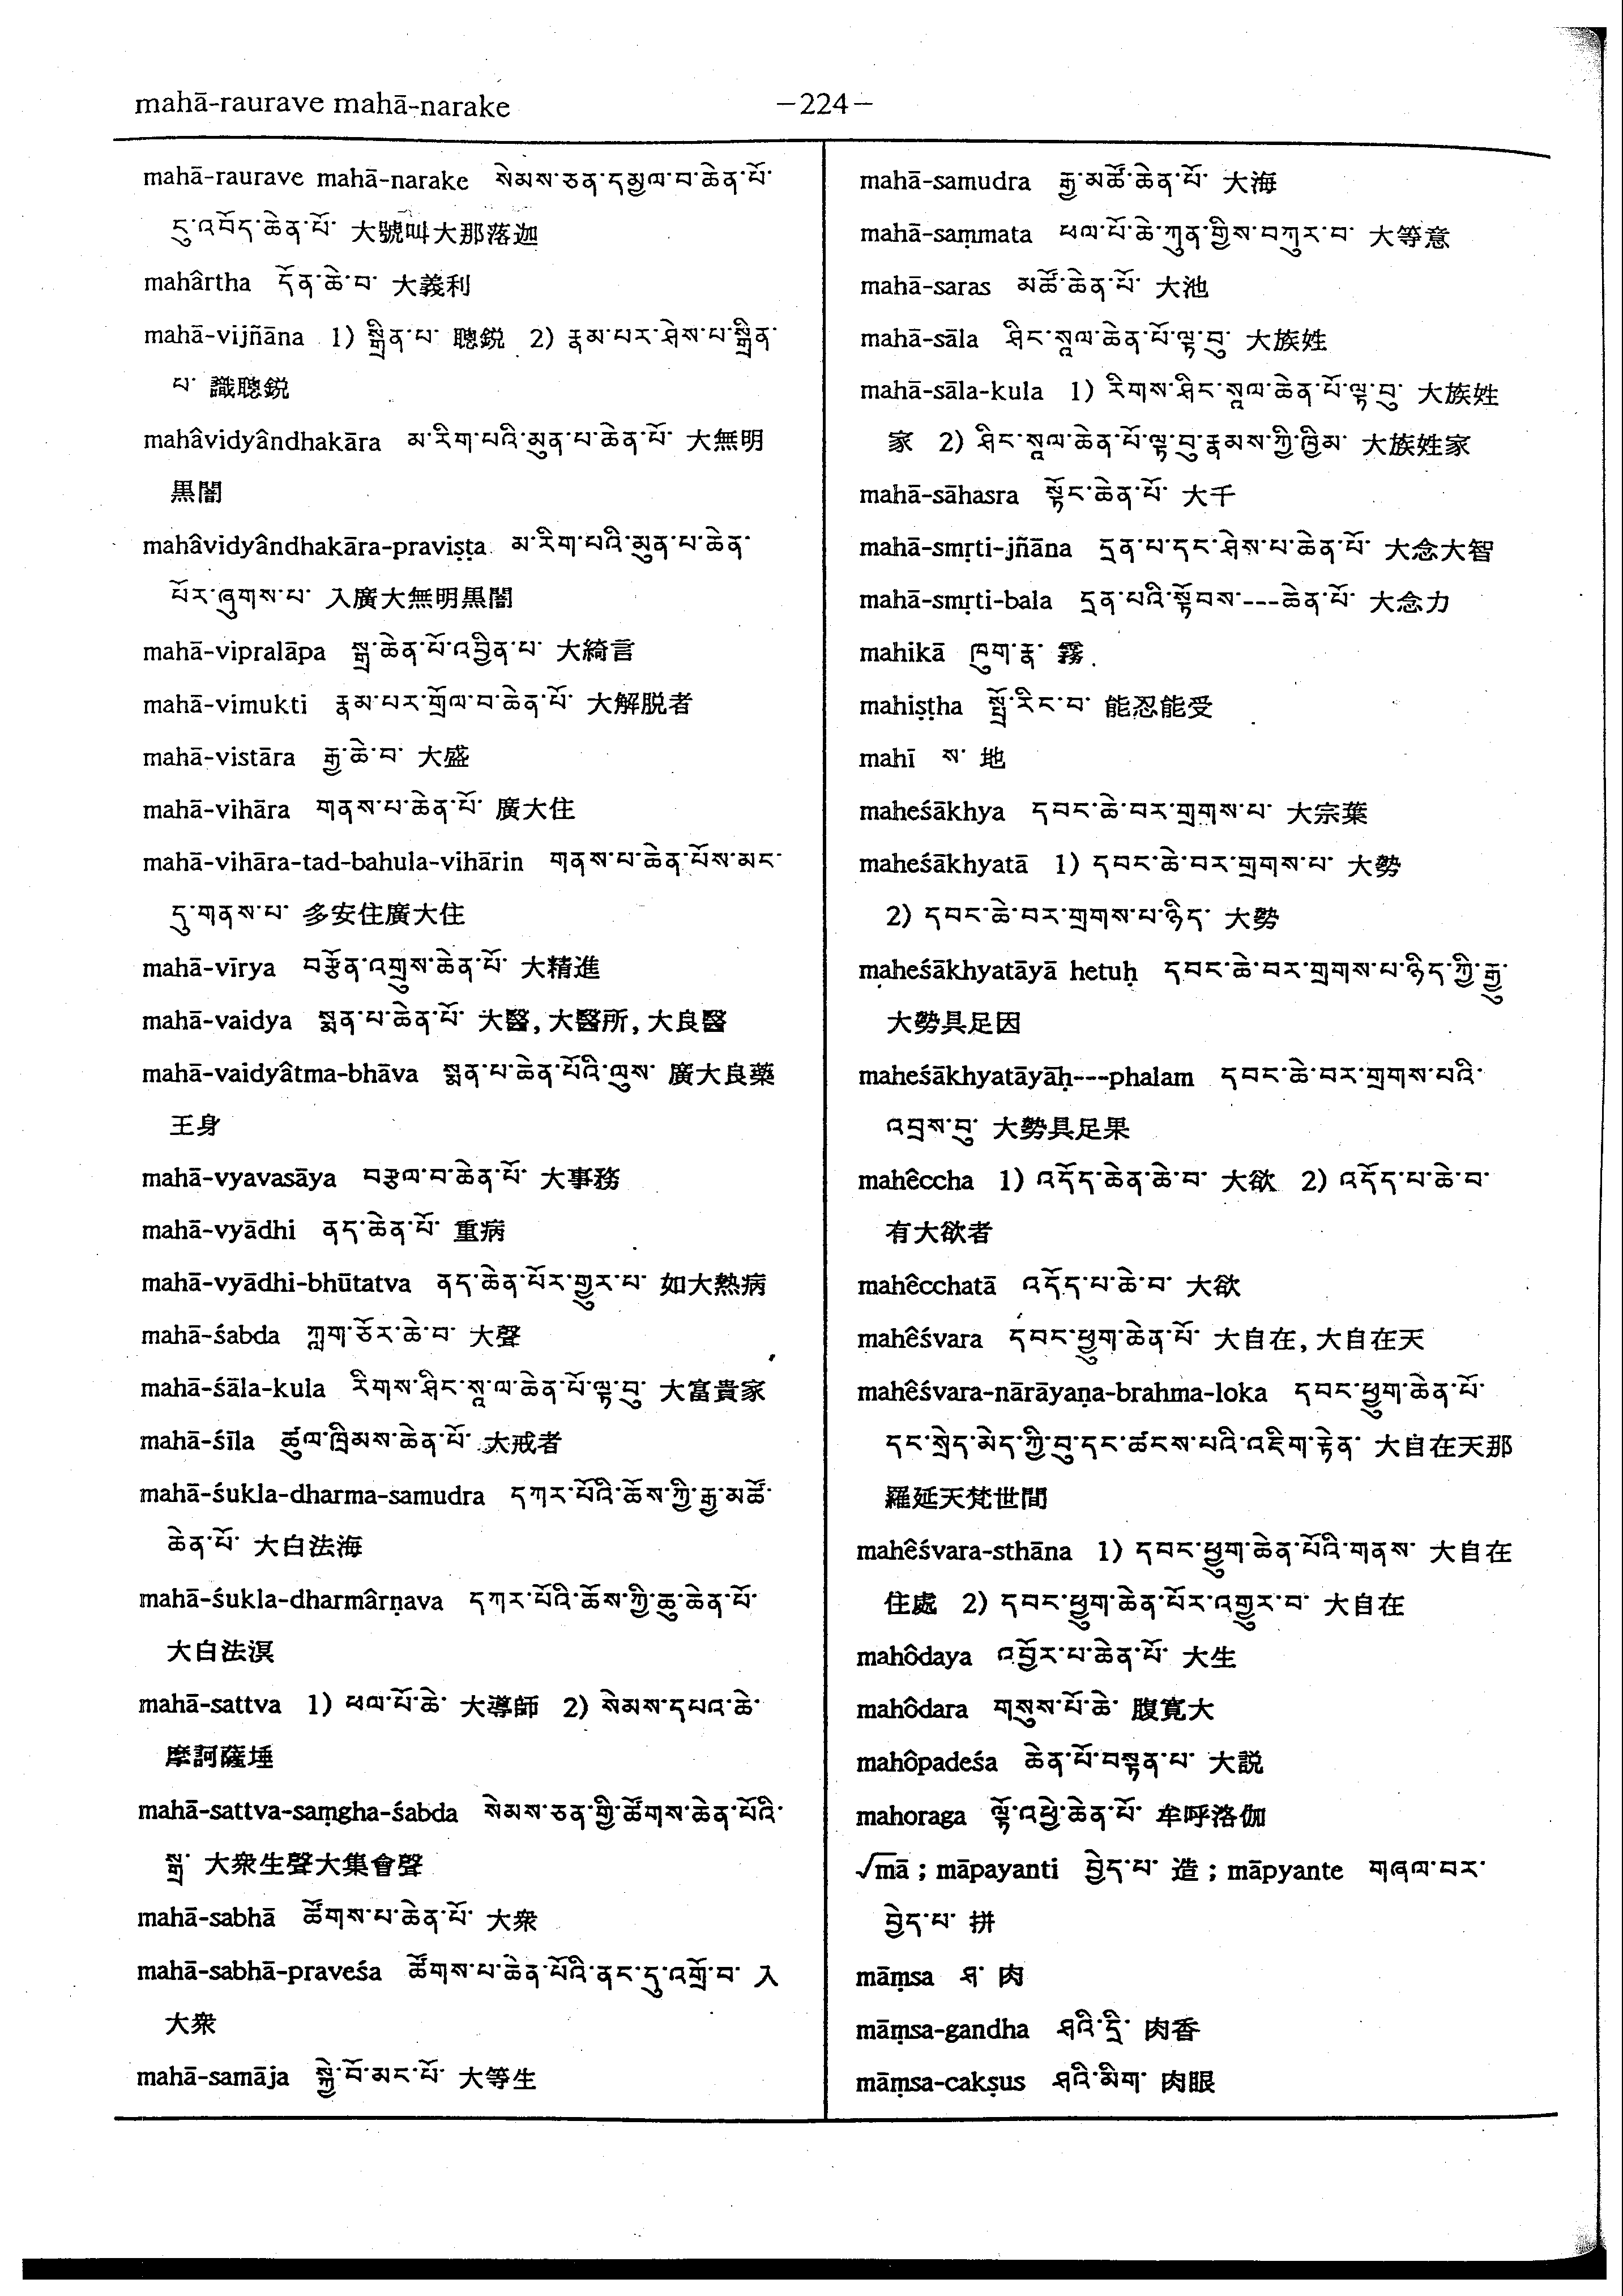 mahā-raurave mahā-narake
—224—
mahā-raurave mahā-narake སེམས་ཅན་དམྱལ་བ་ཆེན་པོ་
དུ་འབོད་ཆེན་པོ་ 大號叫大那落迦
mahârtha དོན་ཆེ་བ་ 大義利
mahā-vijñāna 1) སྒྲིན་པ་ 聰鋭 2) རྣམ་པར་ཤེས་པ་སྒྲིན་
པ་ 識聰鋭
mahâvidyândhakāra མ་རིག་པའི་མུན་པ་ཆེན་པོ་ 大無明
黒闇
mahâvidyândhakāra-praviṣṭa མ་རིག་པའི་མུན་པ་ཆེན་
པོར་ཞུགས་པ་ 入廣大無明黒闇
mahā-vipralāpa སྒྲ་ཆེན་པོ་འབྱིན་པ་ 大綺言
mahā-vimukti རྣམ་པར་གྲོལ་བ་ཆེན་པོ་ 大解脱者
mahā-vistāra རྒྱ་ཆེ་བ་ 大盛
mahā-vihāra གནས་པ་ཆེན་པོ་ 廣大住
mahā-vihāra-tad-bahula-vihārin གནས་པ་ཆེན་པོས་མང་
དུ་གནས་པ་ 多安住廣大住
mahā-vīrya བརྩོན་འགྲུས་ཆེན་པོ་ 大精進
mahā-vaidya སྨན་པ་ཆེན་པོ་ 大醫, 大醫所, 大良醫
mahā-vaidyâtma-bhāva སྨན་པ་ཆེན་པོའི་ལུས་ 廣大良藥
王身
mahā-vyavasāya བརྩལ་བ་ཆེན་པོ་ 大事務
mahā-vyādhi ནད་ཆེན་པོ་ 重病
mahā-vyādhi-bhūtatva ནད་ཆེན་པོར་གྱུར་པ་ 如大熱病
mahā-śabda ཀླག་ཅོར་ཆེ་བ་ 大聲
mahā-śāla-kula རིགས་ཤིང་སཱ་ལ་ཆེན་པོ་ལྟ་བུ་ 大富貴家
mahā-śīla ཚུལ་ཁྲིམས་ཆེན་པོ་ 大戒者
mahā-śukla-dharma-samudra དཀར་པོའི་ཆོས་ཀྱི་རྒྱ་མཚོ་
ཆེན་པོ་ 大白法海
mahā-śukla-dharmârṇava དཀར་པོའི་ཆོས་ཀྱི་ཆུ་ཆེན་པོ་
大白法溟
mahā-sattva 1) ཕལ་པོ་ཆེ་ 大導師 2) སེམས་དཔའ་ཆེ་
摩訶薩埵
mahā-sattva-saṃgha-śabda སེམས་ཅན་གྱི་ཚོགས་ཆེན་པོའི་
སྒྲ་ 大衆生聲大集會聲
mahā-sabhā ཚོགས་པ་ཆེན་པོ་ 大衆
mahā-sabhā-praveśa ཚོགས་པ་ཆེན་པོའི་ནང་དུ་འགྲོ་བ་ 入
大衆
mahā-samāja སྐྱེ་བོ་མང་པོ་ 大等生
mahā-samudra རྒྱ་མཚོ་ཆེན་པོ་ 大海
mahā-saṃmata ཕལ་པོ་ཆེ་ཀུན་གྱིས་བཀུར་བ་ 大等意
mahā-saras མཚོ་ཆེན་པོ་ 大池
mahā-sāla ཤིང་སཱལ་ཆེན་པོ་ལྟ་བུ་ 大族姓
mahā-sāla-kula 1) རིགས་ཤིང་སཱལ་ཆེན་པོ་ལྟ་བུ་ 大族姓
家 2) ཤིང་སཱལ་ཆེན་པོ་ལྟ་བུ་རྣམས་ཀྱི་ཁྱིམ་ 大族姓家
mahā-sāhasra སྟོང་ཆེན་པོ་ 大千
mahā-smṛti-jñāna དྲན་པ་དང་ཤེས་པ་ཆེན་པོ་ 大念大智
mahā-smṛti-bala དྲན་པའི་སྟོབས་---ཆེན་པོ་ 大念力
mahikā ཁུག་རྣ་ 霧
mahiṣṭha སྤྲོ་རིང་བ་ 能忍能受
mahī ས་ 地
maheśākhya དབང་ཆེ་བར་གྲགས་པ་ 大宗葉
maheśākhyatā 1) དབང་ཆེ་བར་གྲགས་པ་ 大勢
2) དབང་ཆེ་བར་གྲགས་པ་ཉིད་ 大勢
maheśākhyatāyā hetuḥ དབང་ཆེ་བར་གྲགས་པ་ཉིད་ཀྱི་རྒྱུ་
大勢具足因
maheśākhyatāyāḥ---phalam དབང་ཆེ་བར་གྲགས་པའི་
འབྲས་བུ་ 大勢具足果
mahêccha 1) འདོད་ཆེན་ཆེ་བ་ 大欲 2) འདོད་པ་ཆེ་བ་
有大欲者
mahêcchatā འདོད་པ་ཆེ་བ་ 大欲
mahêśvara དབང་ཕྱུག་ཆེན་པོ་ 大自在, 大自在天
mahêśvara-nārāyaṇa-brahma-loka དབང་ཕྱུག་ཆེན་པོ་
དང་སྲེད་མེད་ཀྱི་བུ་དང་ཚངས་པའི་འཇིག་རྟེན་ 大自在天那
羅延天梵世間
mahêśvara-sthāna 1) དབང་ཕྱུག་ཆེན་པོའི་གནས་ 大自在
住處 2) དབང་ཕྱུག་ཆེན་པོར་འགྱུར་བ་ 大自在
mahôdaya འབྱོར་པ་ཆེན་པོ་ 大生
mahôdara གསུས་པོ་ཆེ་ 腹寛大
mahôpadeśa ཆེན་པོ་བསྟན་པ་ 大説
mahoraga ལྟོ་འཕྱེ་ཆེན་པོ་ 牟呼洛伽
√mā ; māpayanti བྱེད་པ་ 造 ; māpyante གཞལ་བར་
བྱེད་པ་ 拼
māṃsa ཤ་ 肉
māṃsa-gandha ཤའི་དྲི་ 肉香
māṃsa-cakṣus ཤའི་མིག་ 肉眼